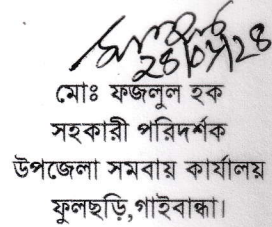 ২৪/০৭/২৪
মোঃ ফজলুল হক
সহকারী পরিদর্শক
উপজেলা সমবায় কার্যালয়
ফুলছড়ি,গাইবান্ধা।